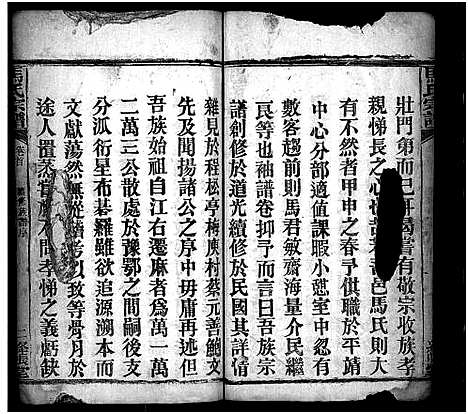 壯門第而已有敬宗收族孝
親悌長之心也哉吾邑馬氏則大
有不然者甲申之春予供職於平靖
中心分部適值課暇小憩室中忽有
數客趨前則馬君敏齋海量介民繼
良等也袖譜卷抑予而言曰吾族宗
譜創修於道光續修於民國其詳情
雜見於程松亭梅庾村蔡元善鮑文
先及聞揚諸公之序中毋庸再述矣
吾族始祖自江右遷麻者為萬一萬
二萬三公散處於豫鄂之間嗣後支
分派衍星布碁羅雖欲追源溯本而
文獻蕩然無從稽考以是等骨月於
途人置烝嘗於不問孝悌之義虧缺
馬氏宗譜
卷首